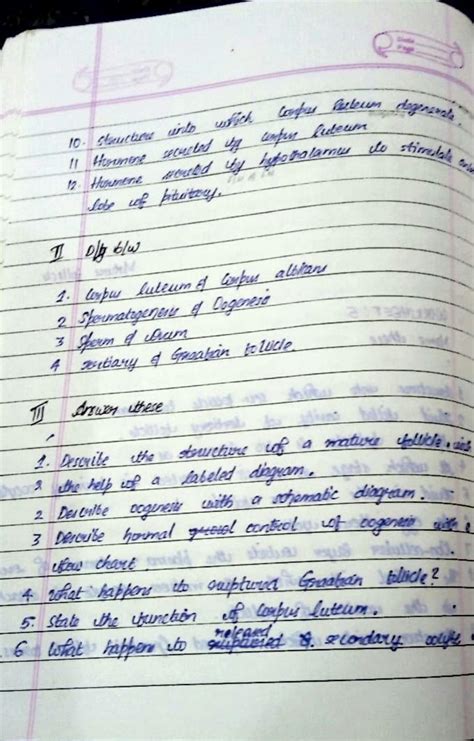 10. Structure into which Corpus luteum degenerate.
11 Hormone secreted by corpus luteum
12. Hormone secreted by hypothalamus to stimulate
lobe of pituitary.
II D/f b/w
1. Corpus luteum & Corpus albicans
2 Spermatogenesis & Oogenesis
3 Sperm & Ovum
4 Tertiary & Graafian follicle
III Answer these
1. Describe the structure of a mature follicle with
2 the help of a labeled diagram.
2 Describe oogenesis with a schematic diagram.
3 Describe hormal control of oogenesis with a
flow chart
4 What happens to ruptured Graafian follicle?
5. State the function of Corpus luteum.
6 What happens to released secondary